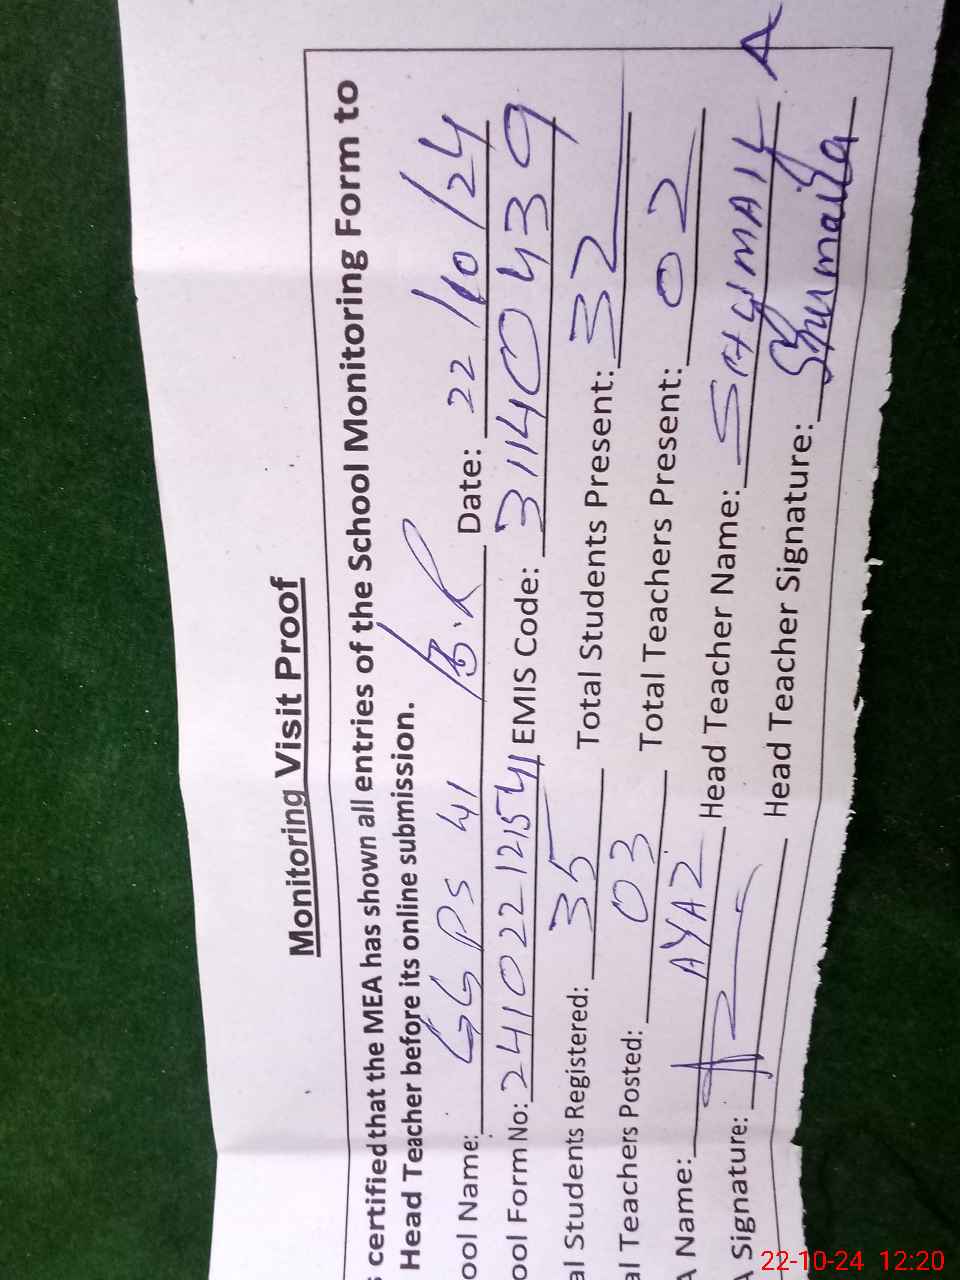 Monitoring Visit Proof
certified that the MEA has shown all entries of the School Monitoring Form to
Head Teacher before its online submission.
ool Name: GGPS 41 /B.R Date: 22/10/24
ool Form No: 241022121541 EMIS Code: 31140439
al Students Registered: 35 Total Students Present: 32
al Teachers Posted: 03 Total Teachers Present: 02
A Name: AYAZ Head Teacher Name:
A Signature: Head Teacher Signature: Shumaila
22-10-24 12:20